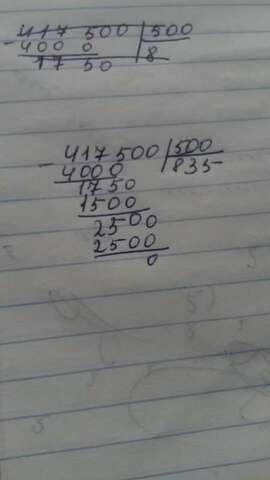 417 500 |500
- 400 0 |8
17 50
- 417500 |500
4000 |835
1750
1500
2500
2500
0